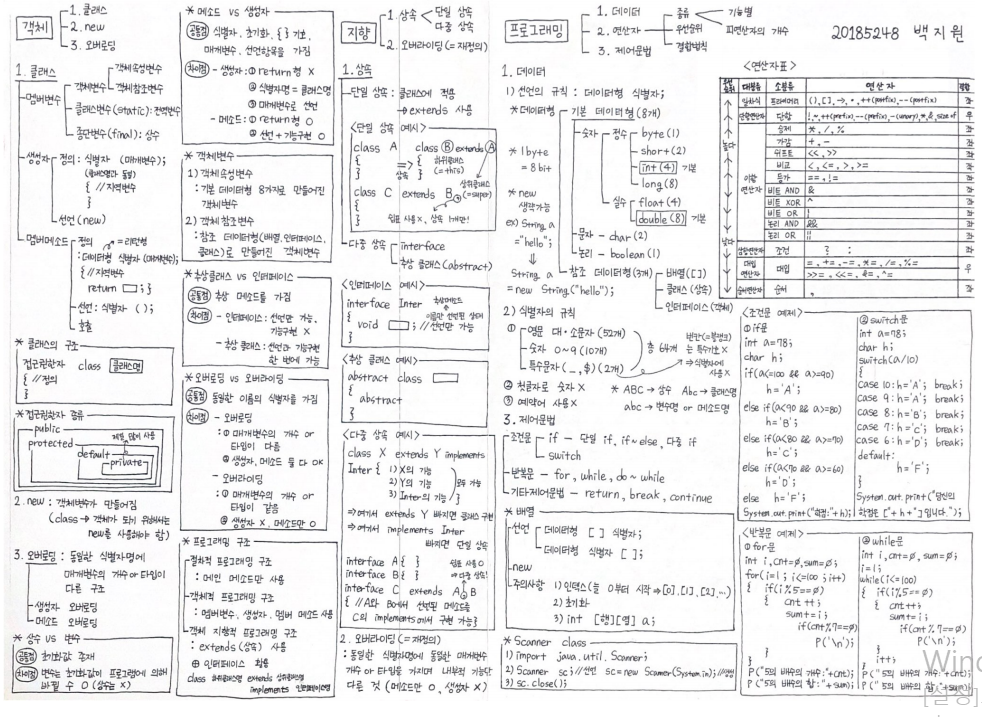 객체
1. 클래스
2. new
3. 오버로딩
1. 클래스
멤버변수
객체변수
객체속성변수
객체참조변수
클래스변수(static): 전역변수
종단변수(final): 상수
생성자
정의: 식별자 (매개변수);
(클래스명과 동일)
{ // 지역변수
}
선언(new)
멤버메소드
정의 = 리턴형
: 데이터형 식별자 (매개변수);
{ // 지역변수
return ; }
선언: 식별자 ( );
호출
* 클래스의 구조
접근권한자 class 클래스명
{ // 정의
}
* 접근권한자 종류
public 제일 많이 사용
protected
default
private
2. new : 객체변수가 만들어짐
(class → 객체가 되기 위해서는
new를 사용해야 함)
3. 오버로딩 : 동일한 식별자명에
매개변수의 개수 or 타입이
다른 구조
생성자 오버로딩
메소드 오버로딩
* 상수 vs 변수
공통점 초기화값 존재
차이점 변수는 초기화값이 프로그램에 의해
바뀔 수 O (상수는 X)
* 메소드 vs 생성자
공통점 식별자, 초기화, { } 기호,
매개변수, 선언항목을 가짐
차이점 - 생성자: ① return형 X
② 식별자명 = 클래스명
③ 매개변수로 선언
- 메소드: ① return형 O
② 선언 + 기능구현 O
* 객체변수
1) 객체속성변수
: 기본 데이터형 8가지로 만들어진
객체변수
2) 객체참조변수
: 참조 데이터형(배열, 인터페이스,
클래스)로 만들어진 객체변수
* 추상클래스 vs 인터페이스
공통점 추상 메소드를 가짐
차이점 - 인터페이스: 선언만 가능,
기능구현 X
- 추상 클래스: 선언과 기능구현
한 번에 가능
* 오버로딩 vs 오버라이딩
공통점 동일한 이름의 식별자를 가짐
차이점 - 오버로딩
: ① 매개변수의 개수 or
타입이 다름
② 생성자, 메소드 둘 다 OK
- 오버라이딩
: ① 매개변수의 개수 or
타입이 같음
② 생성자 X, 메소드만 O
* 프로그램 구조
- 절차적 프로그래밍 구조
: 메인 메소드만 사용
- 객체적 프로그래밍 구조
: 멤버변수, 생성자, 멤버 메소드 사용
- 객체 지향적 프로그래밍 구조
: extends (상속) 사용
⊕ 인터페이스 활용
class 하위클래스명 extends 상위클래스명
implements 인터페이스명
지향
1. 상속
단일 상속
다중 상속
2. 오버라이딩 (= 재정의)
1. 상속
단일 상속 : 클래스에 적용
→ extends 사용
<단일 상속 예시>
class A
{
}
=>
상속
class B extends A
{ 하위클래스
} (=this)
class C extends B 상위클래스 (=super)
{
} 쉼표 사용 X, 상속 1개만!
다중 상속
interface
추상 클래스(abstract)
<인터페이스 예시>
interface Inter 추상메소드
{ 이름만 선언된 상태
void ; // 선언만 가능
}
<추상 클래스 예시>
abstract class
{
abstract
}
<다중 상속 예시>
class X extends Y implements
Inter { 1) X의 기능
2) Y의 기능 모두 가능
3) Inter의 기능 }
=> 여기서 extends Y 빠지면 클래스 구현
=> 여기서 implements Inter
빠지면 단일 상속
interface A { }
interface B { }
쉼표 사용 O
→ 다중 상속!
interface C extends A, B
{ // A와 B에서 선언된 메소드를
C의 implements에서 구현 가능 }
2. 오버라이딩 (= 재정의)
: 동일한 식별자명에 동일한 매개변수
개수 or 타입을 가지며 내부적 기능만
다른 것 (메소드만 O, 생성자 X)
프로그래밍
1. 데이터
2. 연산자
종류
기능별
피연산자의 개수
우선순위
결합법칙
3. 제어문법
20185248 백지원
1. 데이터
1) 선언의 규칙 : 데이터형 식별자;
* 데이터형
기본 데이터형 (8개)
숫자
정수
byte (1)
short (2)
int (4) 기본
long (8)
실수
float (4)
double (8) 기본
문자 - char (2)
논리 - boolean (1)
참조 데이터형 (3개)
배열 ([ ])
클래스 (상속)
인터페이스 (객체)
* 1 byte
= 8 bit
* new
생략가능
ex) String a
= "hello";
⇓
String a
= new String("hello");
2) 식별자의 규칙
① 영문 대·소문자 (52개)
숫자 0~9 (10개)
특수문자 ( _ , $ ) (2개)
총 64개
빈칸(=공백)은
특수기호 X
=> 식별자에
사용 X
② 첫글자로 숫자 X
③ 예약어 사용 X
* ABC → 상수 Abc → 클래스명
abc → 변수명 or 메소드명
3. 제어문법
조건문
if - 단일 if, if ~ else, 다중 if
switch
반복문 - for, while, do ~ while
기타제어문법 - return, break, continue
* 배열
선언
데이터형 [ ] 식별자;
데이터형 식별자 [ ];
new
주의사항
1) 인덱스(늘 0부터 시작 → [0], [1], [2], ...)
2) 초기화
3) int [행][열] a;
* Scanner class
1) import java.util.Scanner;
2) Scanner sc; // 선언 sc = new Scanner(System.in); // 생성
3) sc.close();
<연산자표>
우선순위 대분류 소분류 연산자 결합
높다
낮다
일차식 프라이머리 (), [], →, ., ++(postfix), --(postfix) 좌
단항연산자 단항 !, ~, ++(prefix), --(prefix), -(unary), *, &, sizeof 우
이항 연산자
승제 *, /, % 좌
가감 +, - 좌
쉬프트 <<, >> 좌
비교 <, <=, >, >= 좌
등가 ==, != 좌
비트 AND & 좌
비트 XOR ^ 좌
비트 OR | 좌
논리 AND && 좌
논리 OR || 좌
삼항연산자 조건 ? :
대입 연산자 대입 =, +=, -=, *=, /=, %=
>>=, <<=, &=, ^= 우
순서연산자 순서 , 좌
<조건문 예제>
① if문
int a=78;
char h;
if(a<=100 && a>=90)
h='A';
else if(a<90 && a>=80)
h='B';
else if(a<80 && a>=70)
h='C';
else if(a<70 && a>=60)
h='D';
else h='F';
System.out.print("학점:"+h);
② switch문
int a=78;
char h;
switch(a/10)
{
case 10: h='A'; break;
case 9: h='A'; break;
case 8: h='B'; break;
case 7: h='C'; break;
case 6: h='D'; break;
default:
h='F';
}
System.out.print("당신의
학점은 ["+h+"]입니다.");
<반복문 예제>
① for문
int i, cnt=0, sum=0;
for(i=1; i<=100; i++)
{ if(i%5==0)
{ cnt++;
sum+=i;
if(cnt%7==0)
P('\n');
}
}
P("5의 배수의 개수:"+cnt);
P("5의 배수의 합:"+sum);
② while문
int i, cnt=0, sum=0;
i=1;
while(i<=100)
{ if(i%5==0)
{ cnt++;
sum+=i;
if(cnt%7==0)
P('\n');
}
i++;
}
P("5의 배수의 개수:"+cnt);
P("5의 배수의 합:"+sum);
Wind
[설정]